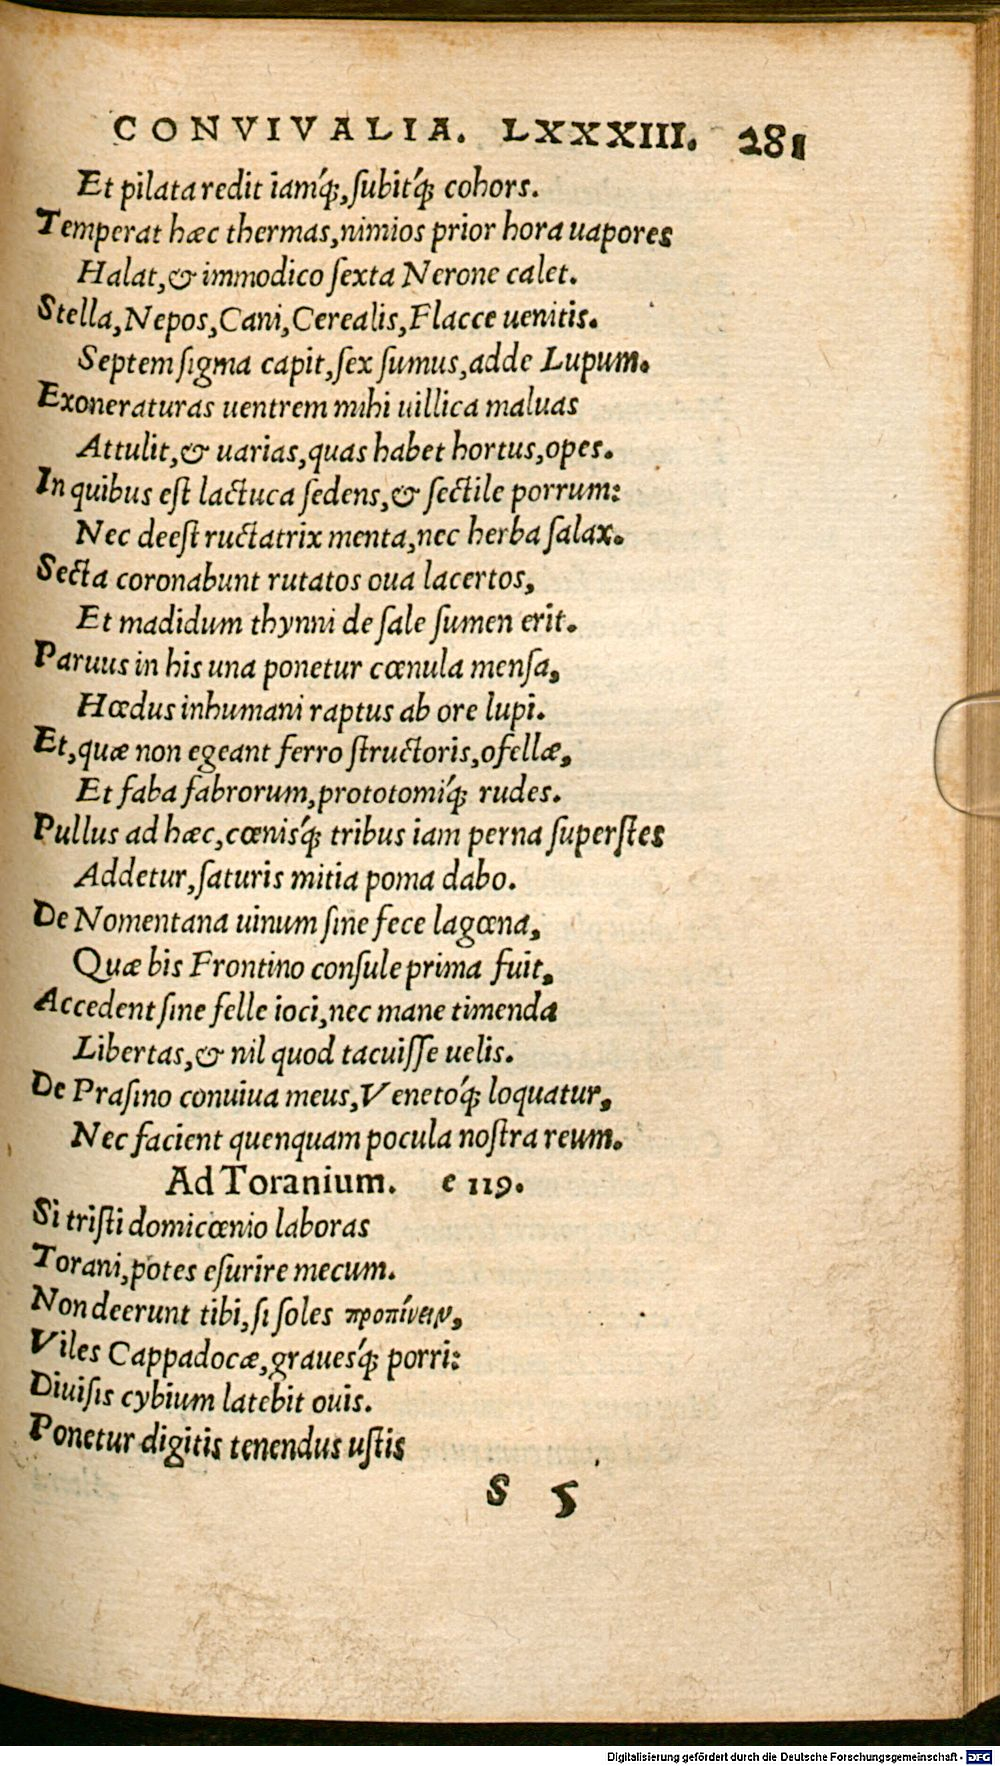 CONVIVALIA. LXXXIII. 281
Et pilata redit iamq́;, ſubitq́; cohors.
Temperat hæc thermas, nimios prior hora uapores
Halat, & immodico ſexta Nerone calet.
Stella, Nepos, Cani, Cerealis, Flacce uenitis.
Septem ſigma capit, ſex ſumus, adde Lupum.
Exoneraturas uentrem mihi uillica maluas
Attulit, & uarias, quas habet hortus, opes.
In quibus eſt lactuca ſedens, & ſectile porrum:
Nec deeſt ructatrix menta, nec herba ſalax.
Secta coronabunt rutatos oua lacertos,
Et madidum thynni de ſale ſumen erit.
Paruus in his una ponetur cœnula menſa,
Hœdus inhumani raptus ab ore lupi.
Et, quæ non egeant ferro ſtructoris, ofellæ,
Et faba fabrorum, prototomiq́; rudes.
Pullus ad hæc, cœnisq́; tribus iam perna ſuperſtes
Addetur, ſaturis mitia poma dabo.
De Nomentana uinum ſine fece lagœna,
Quæ bis Frontino conſule prima fuit,
Accedent ſine felle ioci, nec mane timenda
Libertas, & nil quod tacuiſſe uelis.
De Praſino conuiua meus, Venetoq́; loquatur,
Nec facient quenquam pocula noſtra reum.
Ad Toranium. e 119.
Si triſti domicœnio laboras
Torani, potes eſurire mecum.
Non deerunt tibi, ſi ſoles προπίνειν,
Viles Cappadocæ, grauesq́; porri:
Diuiſis cybium latebit ouis.
Ponetur digitis tenendus uſtis
S 5
Digitalisierung gefördert durch die Deutsche Forschungsgemeinschaft - DFG